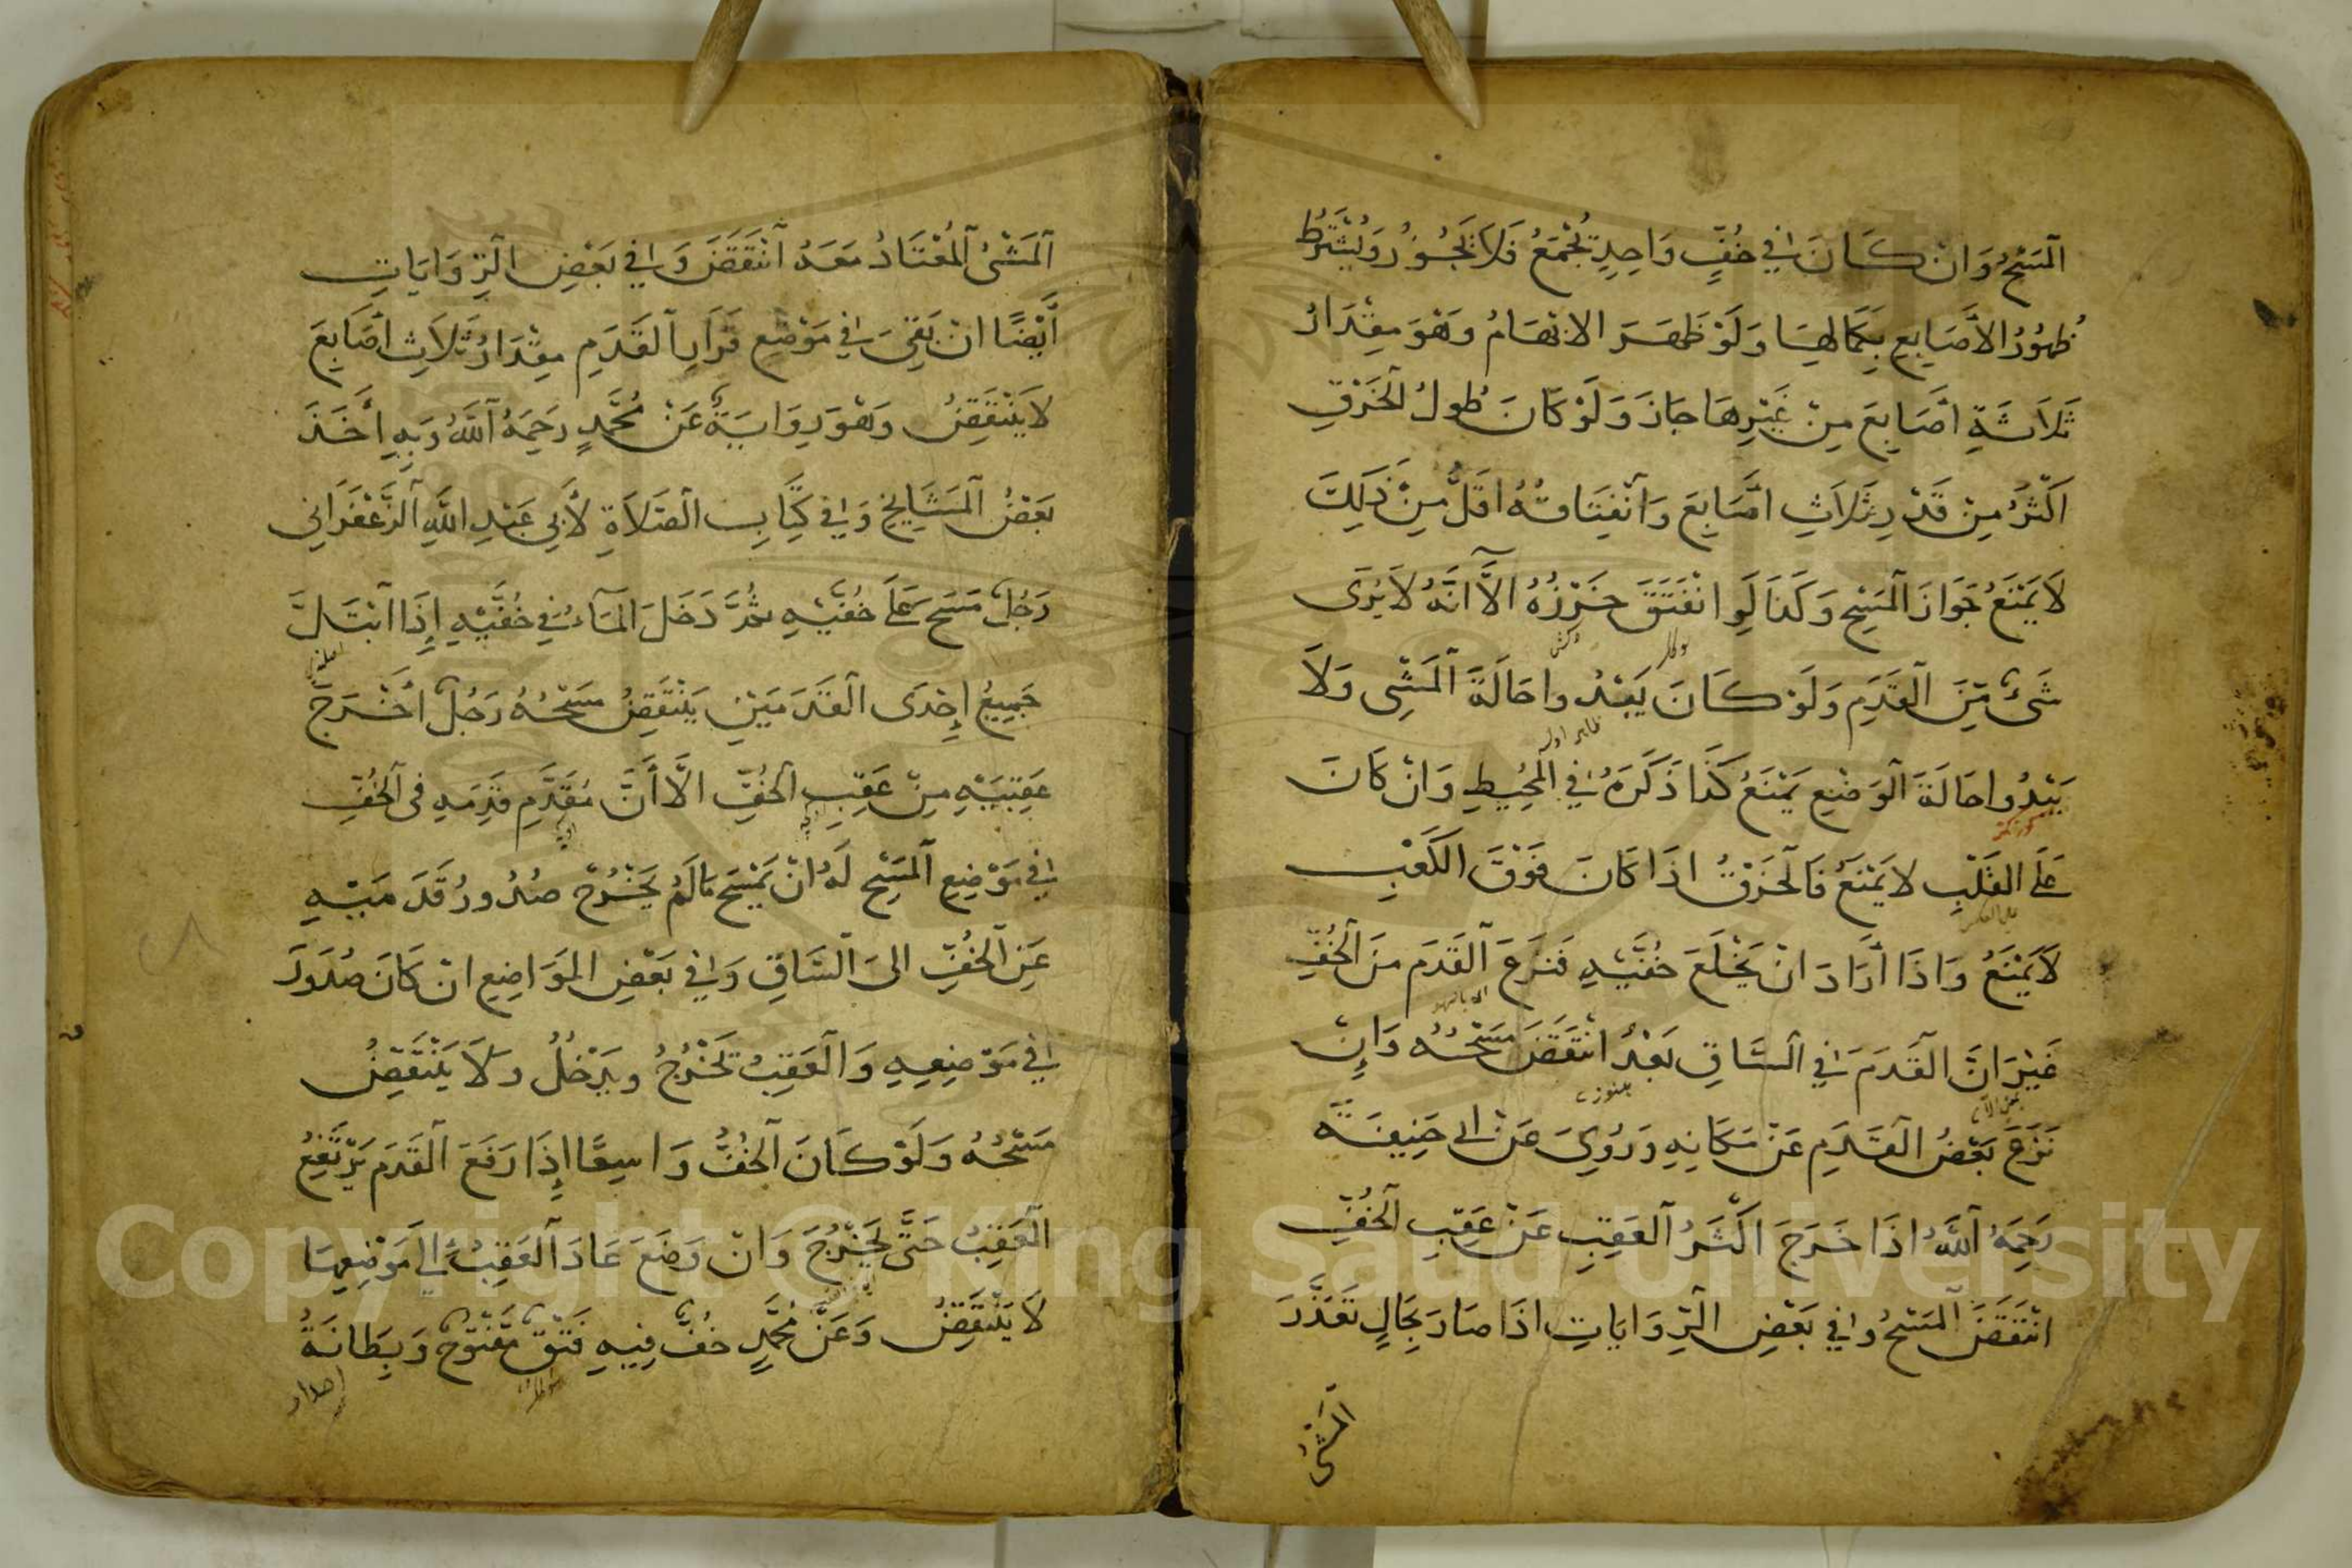 اَلْمَسْحُ وَاِنْ كَانَ فِي خُفٍّ وَاحِدٍ يُجْمَعُ فَلَا يَجُوزُ وَيُشْتَرَطُ
ظُهُورُ الْاَصَابِعِ بِكَمَالِهَا وَلَوْ ظَهَرَ الْاِبْهَامُ وَهُوَ مِقْدَارُ
ثَلَاثَةِ اَصَابِعَ مِنْ غَيْرِهَا جَازَ وَلَوْ كَانَ طُولُ الْخَرْقِ
اَكْثَرُ مِنْ قَدْرِ ثَلَاثِ اَصَابِعَ وَانْفِتَاقُهُ اَقَلُّ مِنْ ذَلِكَ
لَا يَمْنَعُ جَوَازَ الْمَسْحِ وَكَذَا لَوِ انْفَتَقَ خَرْزُهُ اِلَّا اَنَّهُ لَا يُرَى
شَيْءٌ مِنَ الْقَدَمِ وَلَوْ كَانَ يَبْدُوا حَالَةَ الْمَشْىِ وَلَا
يَبْدُوا حَالَةَ الْوَضْعِ يَمْنَعُ كَذَا ذَكَرَهُ فِي الْمُحِيطِ وَاِنْ كَانَ
عَلَى الْقَلْبِ لَا يَمْنَعُ فَالْخَرْقُ اِذَا كَانَ فَوْقَ الْكَعْبِ
على العكس
لَا يَمْنَعُ وَاِذَا اَرَادَ اَنْ يَخْلَعَ خُفَّيْهِ فَنَزَعَ الْقَدَمَ مِنَ الْخُفِّ
غَيْرَ اَنَّ الْقَدَمَ فِي السَّاقِ بَعْدُ انْتَقَضَ مَسْحُهُ وَاِنْ
نَزَعَ بَعْضُ الْقَدَمِ عَنْ مَكَانِهِ وَرُوِيَ عَنْ ابى حَنِيفَةَ
رَحِمَهُ اللَّهُ اِذَا خَرَجَ اَكْثَرُ الْعَقِبِ عَنْ عَقِبِ الْخُفِّ
انْتَقَضَ الْمَسْحُ وَفِي بَعْضِ الرِّوَايَاتِ اِذَا صَارَ بِحَالٍ تَعَذَّرَ
اَلْمَشْىُ
اَلْمَشْىُ الْمُعْتَادُ مَعَهُ انْتَقَضَ وَفِي بَعْضِ الرِّوَايَاتِ
اَيْضًا اِنْ بَقِيَ فِي مَوْضِعِ قَرَارِ الْقَدَمِ مِقْدَارُ ثَلَاثِ اَصَابِعَ
لَا يَنْتَقِضُ وَهُوَ رِوَايَةٌ عَنْ مُحَمَّدٍ رَحِمَهُ اللَّهُ وَبِهِ اَخَذَ
بَعْضُ الْمَشَايِخِ وَفِي كِتَابِ الصَّلَاةِ لِأَبِي عَبْدِ اللَّهِ الزَّعْفَرَانِي
رَجُلٌ مَسَحَ عَلَى خُفَّيْهِ ثُمَّ دَخَلَ الْمَاءُ فِي خُفَّيْهِ اِذَا ابْتَلَّ
جَمِيعُ اِحْدَى الْقَدَمَيْنِ يَنْتَقِضُ مَسْحُهُ رَجُلٌ اَخْرَجَ
عَقِبَيْهِ مِنْ عَقِبِ الْخُفِّ اِلَّا اَنَّ مُقَدَّمِ قَدَمِهِ فِى الْخُفِّ
فِي مَوْضِعِ الْمَسْحِ لَهُ اَنْ يَمْسَحَ مَا لَمْ يَخْرُجْ صُدُورُ قَدَمَيْهِ
عَنِ الْخُفِّ اِلَى السَّاقِ وَفِي بَعْضِ الْمَوَاضِعِ اِنْ كَانَ صُدُورَ
فِي مَوْضِعِهِ وَالْعَقِبُ تَخْرُجُ وَيَدْخُلُ وَلَا يَنْتَقِضُ
مَسْحُهُ وَلَوْ كَانَ الْخُفُّ وَاسِعًا اِذَا رَفَعَ الْقَدَمَ يَرْتَفِعُ
الْعَقِبُ حَتَّى يَخْرُجَ وَاِنْ وَضَعَ عَادَ الْعَقِبُ اِلَى مَوْضِعِهَا
لَا يَنْتَقِضُ وَعَنْ مُحَمَّدٍ خُفٌّ فِيهِ فَتْقٌ مَفْتُوحٌ وَبِطَانَةُ
Copyright © King Saud University
1957